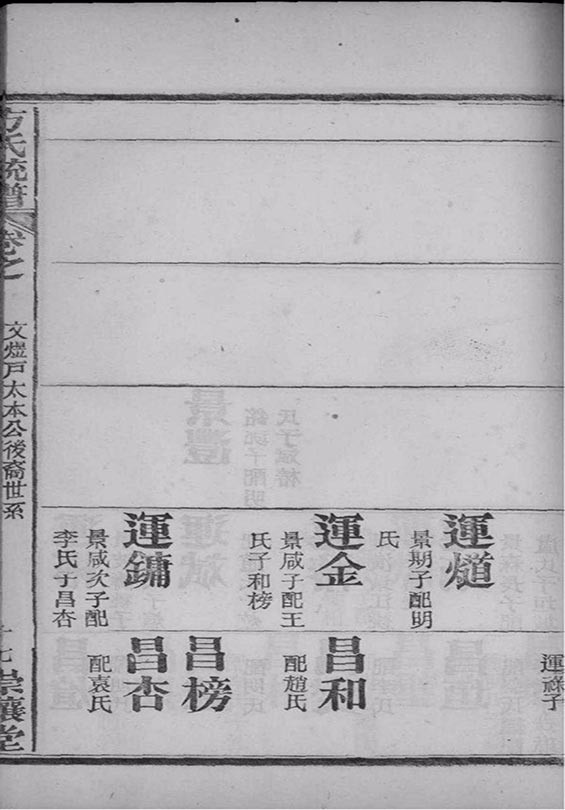 運祿子
運熢
景期子配明
氏
運金
景咸子配王
氏子和榜
運鏞
景咸次子配
李氏子昌杏
昌和
配趙氏
昌榜
昌杏
配袁氏
方氏統譜
卷之
文燈戶太本公後裔世系
崇讓堂